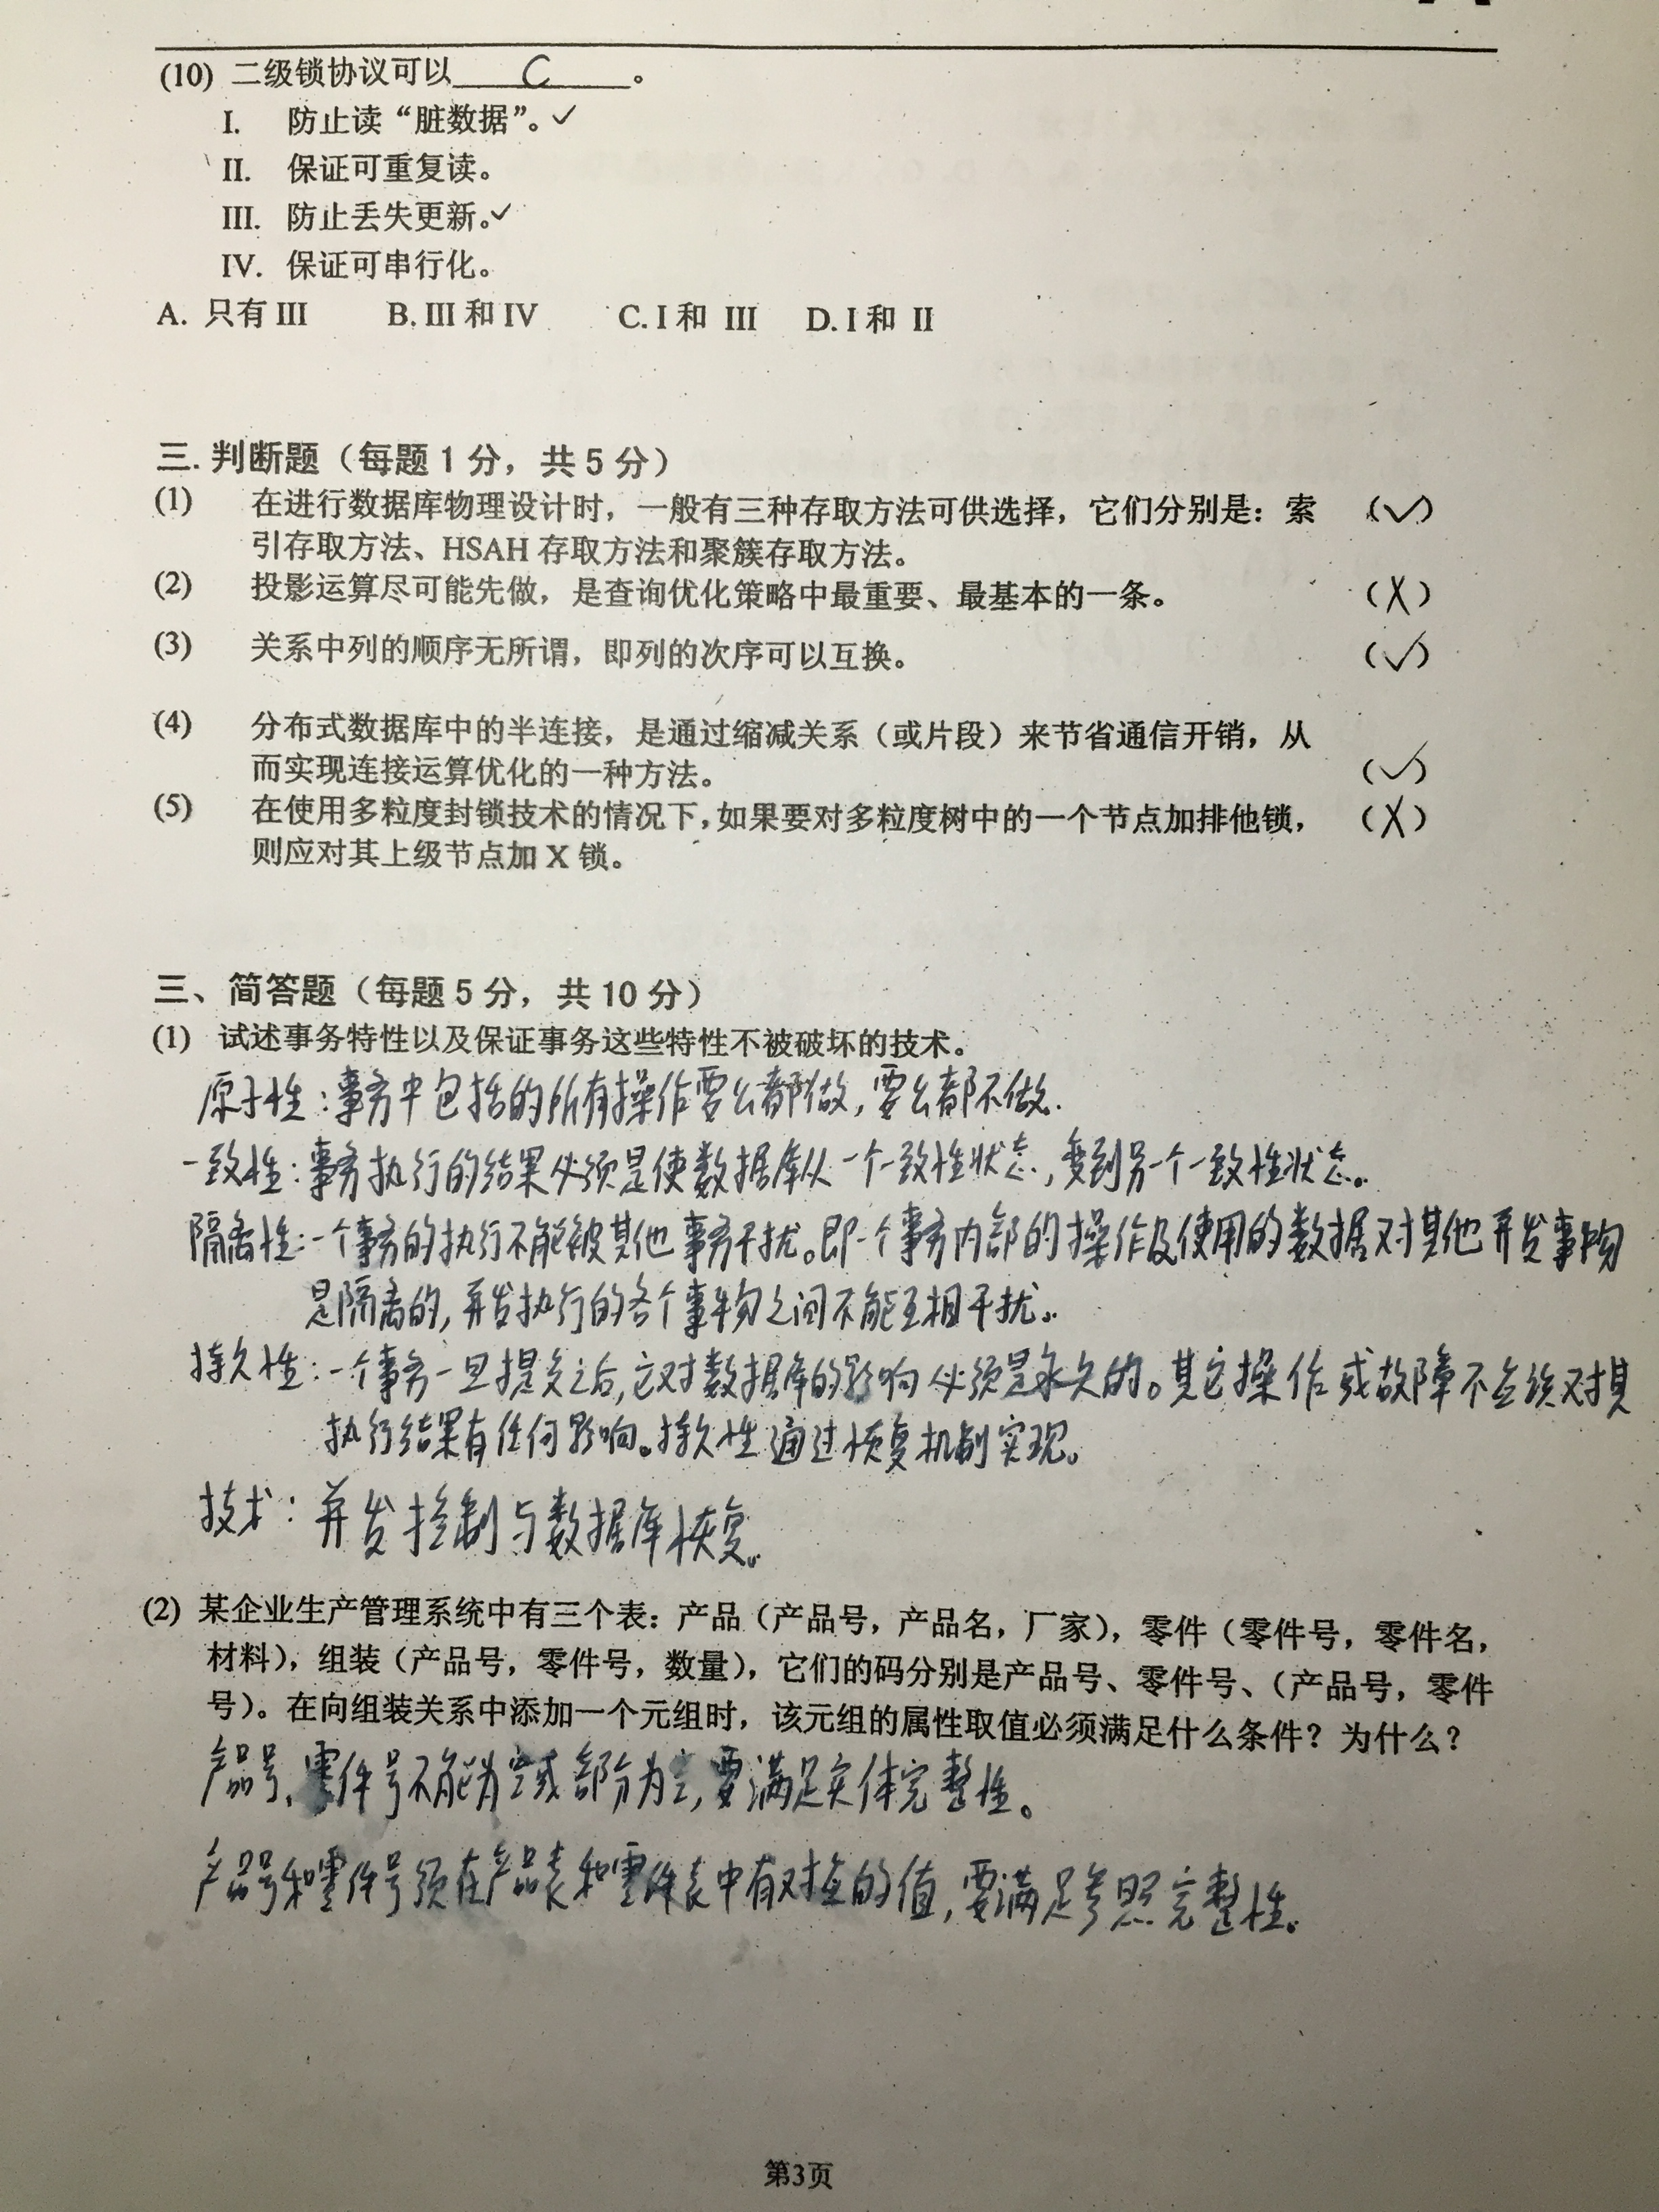 (10) 二级锁协议可以 C 。
I. 防止读“脏数据”。✓
II. 保证可重复读。
III. 防止丢失更新。✓
IV. 保证可串行化。
A. 只有 III B. III 和 IV C. I 和 III D. I 和 II
三. 判断题（每题 1 分，共 5 分）
(1) 在进行数据库物理设计时，一般有三种存取方法可供选择，它们分别是：索 (✓)
引存取方法、HSAH 存取方法和聚簇存取方法。
(2) 投影运算尽可能先做，是查询优化策略中最重要、最基本的一条。 (X)
(3) 关系中列的顺序无所谓，即列的次序可以互换。 (✓)
(4) 分布式数据库中的半连接，是通过缩减关系（或片段）来节省通信开销，从
而实现连接运算优化的一种方法。 (✓)
(5) 在使用多粒度封锁技术的情况下，如果要对多粒度树中的一个节点加排他锁， (X)
则应对其上级节点加 X 锁。
三、简答题（每题 5 分，共 10 分）
(1) 试述事务特性以及保证事务这些特性不被破坏的技术。
原子性：事务中包括的所有操作要么都做，要么都不做.
一致性：事务执行的结果必须是使数据库从一个一致性状态，变到另一个一致性状态。
隔离性：一个事务的执行不能被其他事务干扰。即一个事务内部的操作及使用的数据对其他并发事物
是隔离的，并发执行的各个事物之间不能互相干扰。
持久性：一个事务一旦提交之后，它对数据库的影响必须是永久的。其它操作或故障不应该对其
执行结果有任何影响。持久性通过恢复机制实现。
技术：并发控制与数据库恢复。
(2) 某企业生产管理系统中有三个表：产品（产品号，产品名，厂家），零件（零件号，零件名，
材料），组装（产品号，零件号，数量），它们的码分别是产品号、零件号、（产品号，零件
号）。在向组装关系中添加一个元组时，该元组的属性取值必须满足什么条件？为什么？
产品号、零件号不能为空或部分为空，要满足实体完整性。
产品号和零件号须在产品表和零件表中有对应的值，要满足参照完整性。
第3页